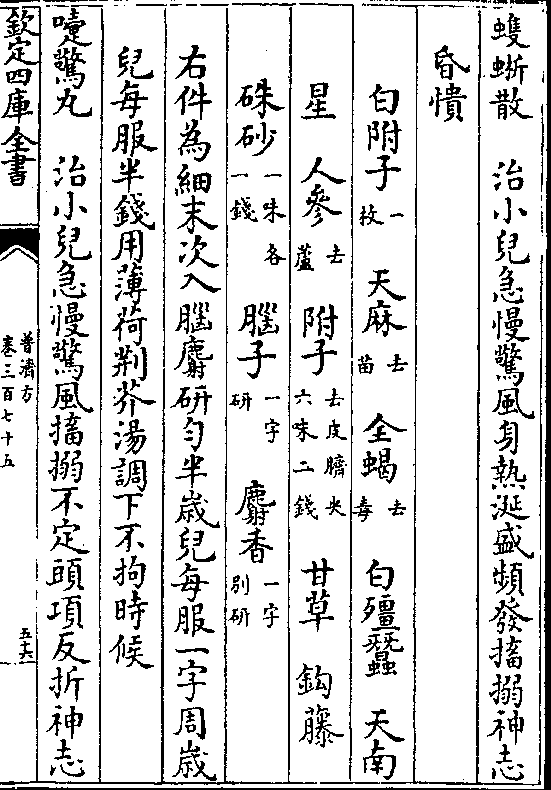 䗪蜥散　治小兒急慢驚風身熱涎盛頻發搐搦神志
昏憒
白附子一枚　天麻去苗　全蝎去毒　白殭蠶　天南
星　人參去蘆　附子去皮臍尖六味二錢　甘草　鈎藤
硃砂一味各一錢　腦子一字研　麝香一字別研
右件為細末次入腦麝研勻半歲兒每服一字周歲
兒每服半錢用薄荷荆芥湯調下不拘時候
嚏驚丸　治小兒急慢驚風搐搦不定頭項反折神志
欽定四庫全書
普濟方
卷三百七十五
五六